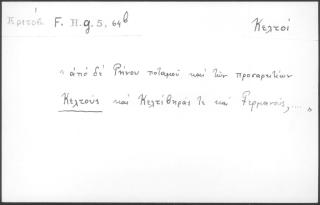 Κριτόβ. F. H. g. 5. 64b
Κελτοί
"ἀπὸ δὲ Ρήνου ποταμοῦ καὶ τῶν προσαρκτίων
Κελτούς καὶ Κελτίβηράς τε καὶ Γερμανούς,...."